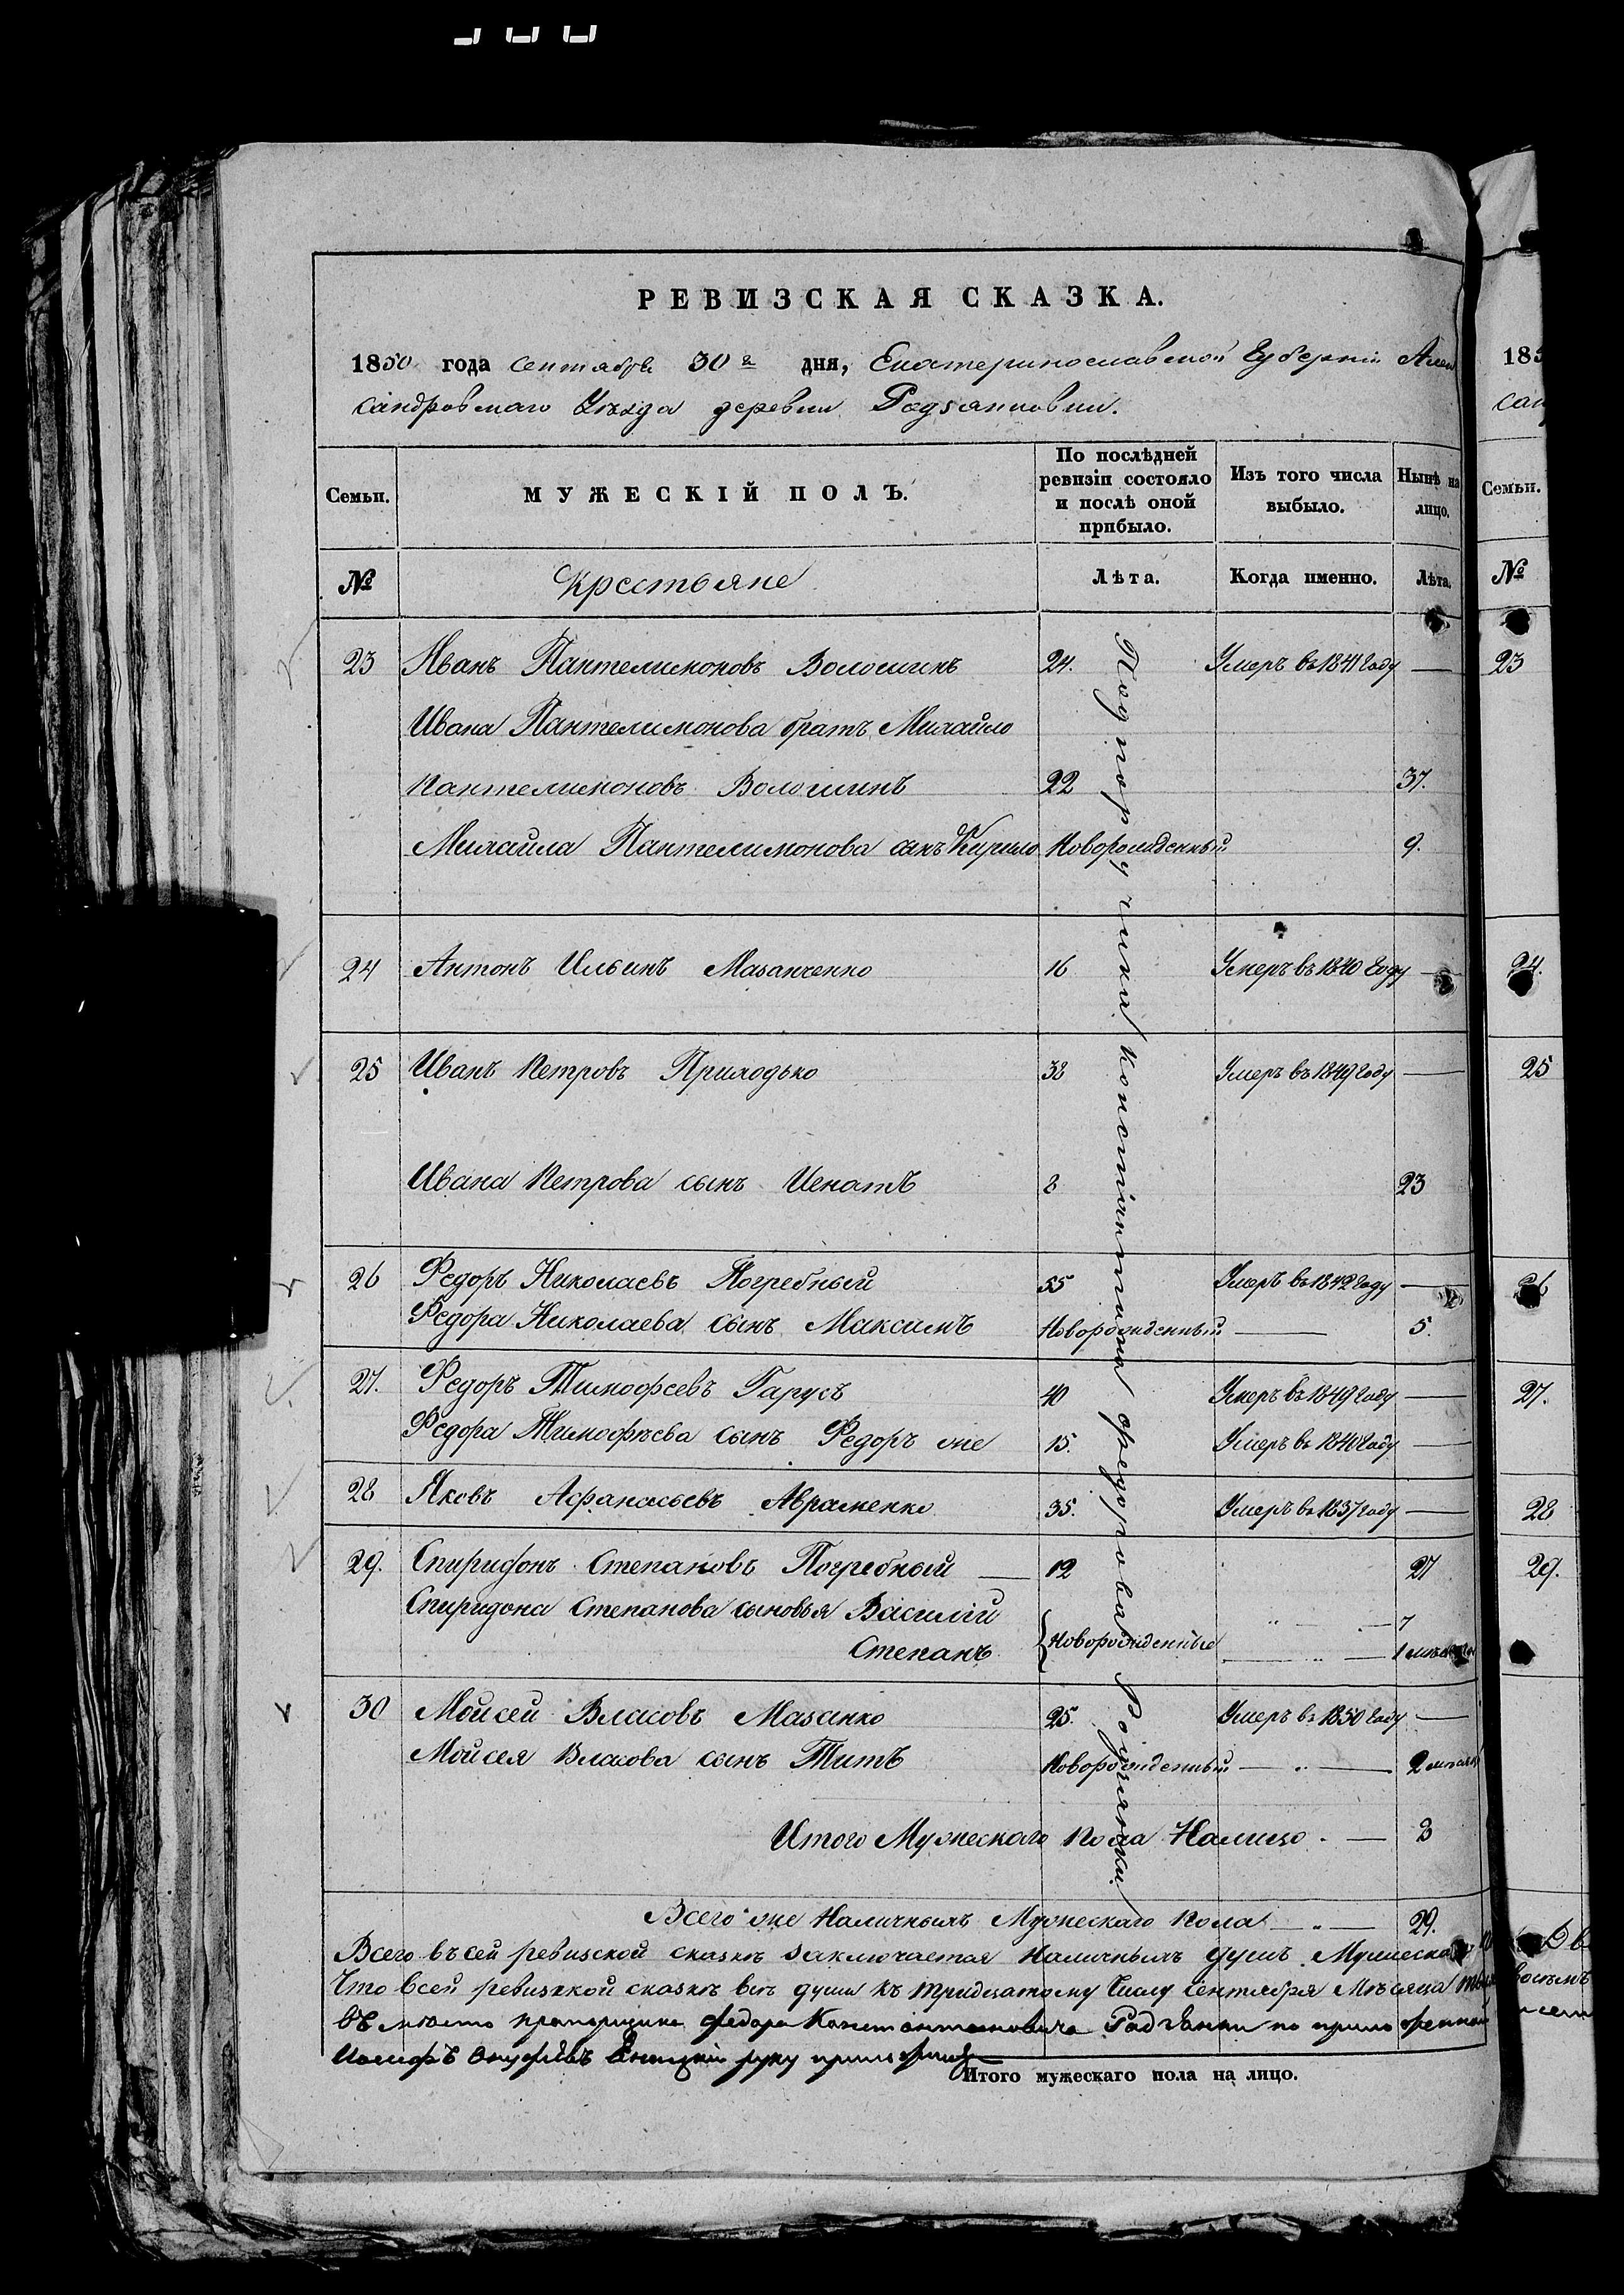 РЕВИЗСКАЯ СКАЗКА.
1850 года Сентября 30го дня, Екатеринославской Губерніи Алек
сандровскаго Уѣзда деревни Родзянковки.
Семьи. МУЖЕСКІЙ ПОЛЪ. По послѣдней ревизіи состояло и послѣ оной прибыло. Изъ того числа выбыло. Нынѣ на лицо.
№ Крестьяне Лѣта. Когда именно. Лѣта.
23 Иванъ Пантелимоновъ Волошинъ 24. Умеръ въ 1841 году —
Ивана Пантелимонова братъ Михайло
Пантелимоновъ Волошинъ 22 37.
Михайла Пантелимонова сынъ Кирило Новорожденный 9.
24 Антонъ Ильинъ Мазанченко 16 Умеръ въ 1840 году —
25 Иванъ Петровъ Приходько 38 Умеръ въ 1849 году —
Ивана Петрова сынъ Игнатъ 8 23
26 Федоръ Николаевъ Погребный 55 Умеръ въ 1842 году —
Федора Николаева сынъ Максимъ Новорожденный — 5.
27. Федоръ Тимофеевъ Гарусъ 40 Умеръ въ 1849 году —
Федора Тимофѣева сынъ Федоръ же 15. Умеръ въ 1840 году —
28 Яковъ Афанасьевъ Авраменко 35. Умеръ въ 1837 году —
29. Спиридонъ Степановъ Погребный — 12 27
Спиридона Степанова сыновья Василій 7
Степанъ Новорожденные 1
30 Мойсей Власовъ Мазанко 25. Умеръ въ 1850 году —
Мойсея Власова сынъ Титъ Новорожденный — 2
Итого Мужескаго Пола Налицо. — 8
Подпоручика Константина Федорова Родзянки
Всего же Наличныхъ Мужескаго Пола — 29.
Всего въ сей ревизской сказкѣ заключается Наличныхъ душъ Мужеска
Что всей ревизской сказкѣ всѣ души къ тридцатому Числу Сентября Мѣсяца
вмѣсто прапорщика Федора Константиновича Родзянки по
Иосифъ Онуфріевъ руку приложилъ
Итого мужескаго пола на лицо.
185
сан
Семьи.
№
23
24.
25
26
27.
28
29.